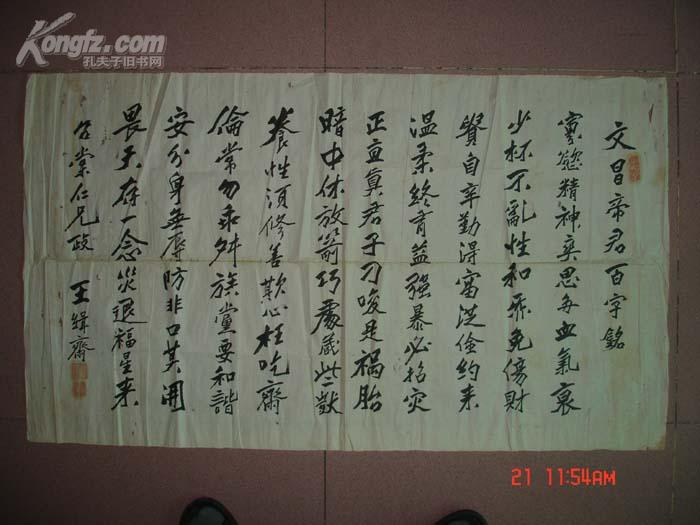 Kongfz.com
孔夫子旧书网
文昌帝君百字銘
寡慾精神爽思多血氣衰
少杯不亂性和乖免傷財
貴自辛勤得富從儉約来
温柔終有益强暴必招灾
正直真君子刁唆是禍胎
暗中休放箭巧處藏些獃
養性須修善欺心枉吃齋
倫常勿乖舛族黨要和諧
安分身無辱防非口莫開
畏天存一念災退福星来
召棠仁兄政 王緝齋
21 11:54AM